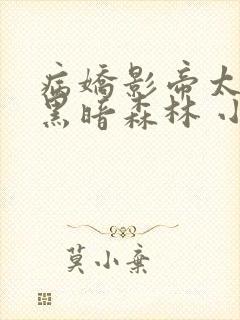 病娇影帝太
黑暗森林 小
莫小棄